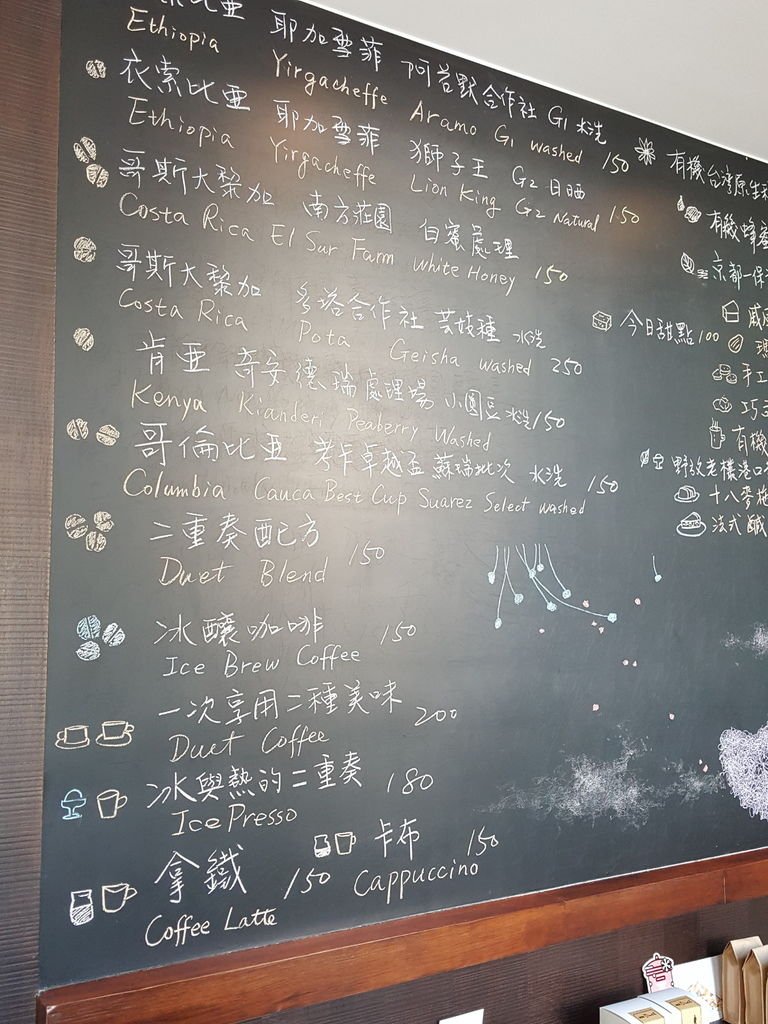 比亞 耶加雪菲 阿若默合作社 G1 水洗
Ethiopia Yirgacheffe Aramo G1 washed 150
衣索比亞 耶加雪菲 獅子王 G2 日晒
Ethiopia Yirgacheffe Lion King G2 Natural 150
哥斯大黎加 南方莊園 白蜜處理
Costa Rica El Sur Farm White Honey 150
哥斯大黎加 多塔合作社 芸妓種 水洗
Costa Rica Pota Geisha washed 250
肯亞 奇安德瑞處理場 小圓豆 水洗 150
Kenya Kianderi Peaberry Washed
哥倫比亞 考卡卓越盃 蘇瑞批次 水洗 150
Columbia Cauca Best Cup Suarez Select washed
二重奏配方 150
Duet Blend
冰釀咖啡 150
Ice Brew Coffee
一次享用二種美味 200
Duet Coffee
冰與熱的二重奏 180
Ice Presso
拿鐵 150
Coffee Latte
卡布 150
Cappuccino
有機台灣原生種
有機蜂蜜
京都一保
今日甜點 100
戚風
手工
巧
有機
十八麥
法式鹹